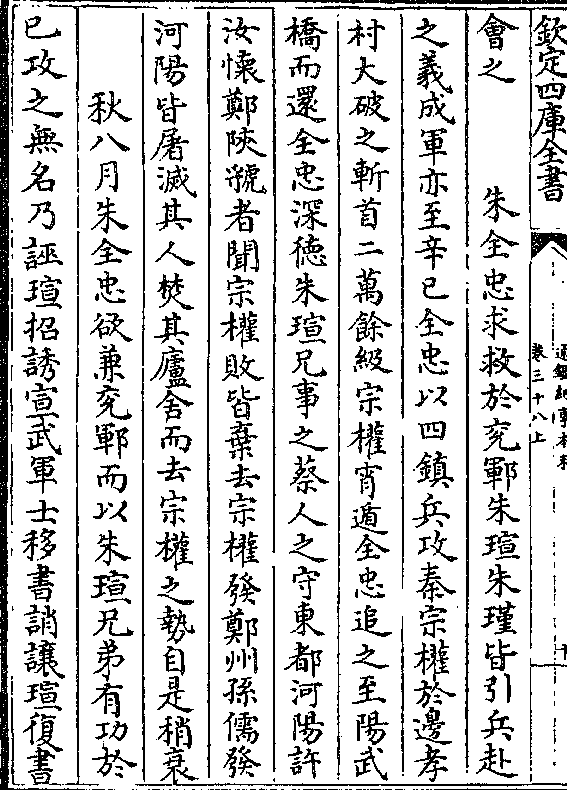 欽定四庫全書
通鑑紀事本末
卷三十八上
十
會之　朱全忠求救於兖鄆朱瑄朱瑾皆引兵赴
之義成軍亦至辛巳全忠以四鎮兵攻秦宗權於邊孝
村大破之斬首二萬餘級宗權宵遁全忠追之至陽武
橋而還全忠深德朱瑄兄事之蔡人之守東都河陽許
汝懷鄭陜虢者聞宗權敗皆棄去宗權發鄭州孫儒發
河陽皆屠滅其人焚其廬舍而去宗權之勢自是稍衰
秋八月朱全忠欲兼兖鄆而以朱瑄兄弟有功於
已攻之無名乃誣瑄招誘宣武軍士移書誚讓瑄復書